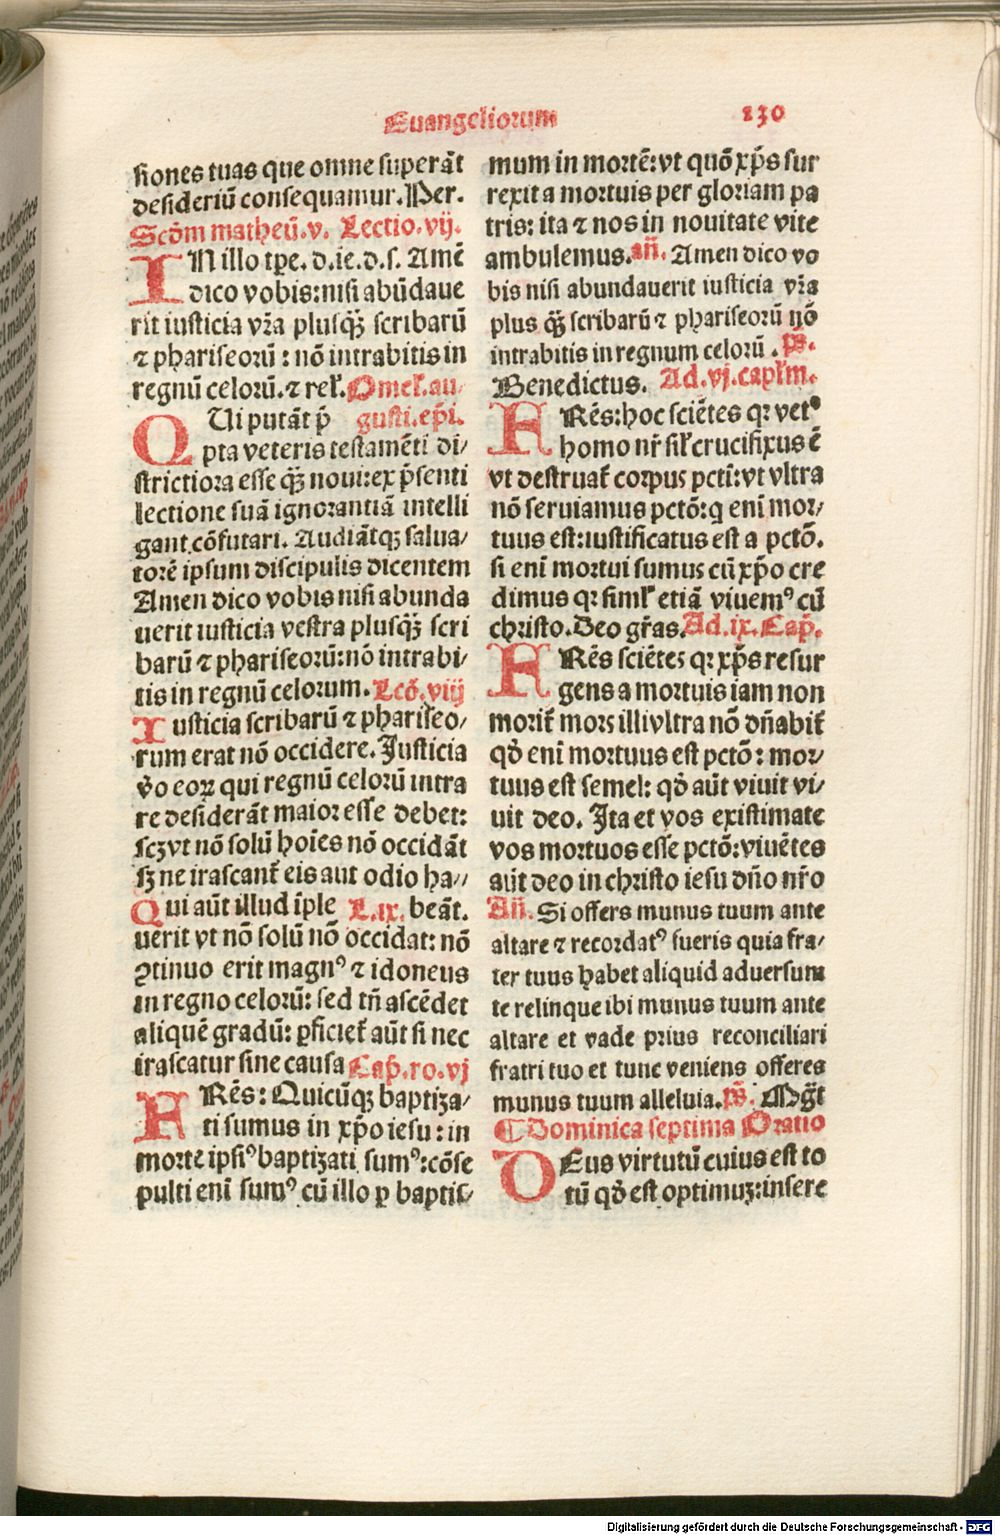 Euangeliorum 130
siones tuas que omne superãt
desideriũ consequamur. Per.
Scďm matheũ. v. Lectio. vij.
IN illo tꝑe. d. ie. d. s. Amẽ
dico vobis: nisi abũdaue
rit iusticia vr̃a plusqꝫ̃ scribarũ
⁊ phariseorũ: nõ intrabitis in
regnũ celorũ. ⁊ rel̃. Omel̃. au/
QUi putãt p̃ gusti. ep̃i.
pta veteris testamẽti di/
strictiora esse qꝫ̃ noui: ex p̃senti
lectione suã ignorantiã intelli
gant cõfutari. Audiãtqꝫ salua/
torẽ ipsum discipulis dicentem
Amen dico vobis nisi abunda
uerit iusticia vestra plusqꝫ̃ scri
barũ ⁊ phariseorũ: nõ intrabi/
tis in regnũ celorum. Lcõ. viij
Iusticia scribarũ ⁊ phariseo/
rum erat nõ occidere. Iusticia
ṽo eoꝝ qui regnũ celorũ intra
re desiderãt maior esse debet:
scꝫ vt nõ solũ hoĩes nõ occidãt
sꝫ ne irascant̃ eis aut odio ha//
Qui aũt illud ĩple L. ix. beãt.
uerit vt nõ solũ nõ occidat: nõ
ꝯtinuo erit magnꝰ ⁊ idoneus
in regno celorũ: sed tñ ascẽdet
aliquẽ gradũ: ꝑficiet̃ aũt si nec
irascatur sine causa Cap̃. ro. vj
FRẽs: Quicũqꝫ baptiza/
ti sumus in xp̃o iesu: in
morte ipsiꝰ baptizati sumꝰ: cõse
pulti enĩ sumꝰ cũ illo ꝑ baptis/
mum in mortẽ: vt quõ xp̃s sur
rexit a mortuis per gloriam pa
tris: ita ⁊ nos in nouitate vite
ambulemus. añ. Amen dico vo
bis nisi abundauerit iusticia vr̃a
plus qꝫ̃ scribarũ ⁊ phariseorũ nõ
intrabitis in regnum celorũ. p̃s.
Benedictus. Ad. vj. capl̃m.
FRẽs: hoc sciẽtes qꝛ vetꝰ
homo nr̃ sil̃ crucifixus ẽ
vt destruat̃ corpus pctĩ: vt vltra
nõ seruiamus pctõ: q enĩ mor/
tuus est: iustificatus est a pctõ.
si enĩ mortui sumus cũ xp̃o cre
dimus qꝛ siml̃ etiã viuemꝰ cũ
christo. Deo gr̃as. Ad. ix. Cap̃.
FRẽs sciẽtes qꝛ xp̃s resur
gens a mortuis iam non
morit̃ mors illi vltra nõ dñabit̃
qď enĩ mortuus est pctõ: mor/
tuus est semel: qď aũt viuit vi/
uit deo. Ita et vos existimate
vos mortuos esse pctõ: viuẽtes
aũt deo in christo iesu dño nr̃o
Añ. Si offers munus tuum ante
altare ⁊ recordatꝰ fueris quia fra/
ter tuus habet aliquid aduersum
te relinque ibi munus tuum ante
altare et vade prius reconciliari
fratri tuo et tunc veniens offeres
munus tuum alleluia. p̃s. Mg̃t
¶ Dominica septima Oratio
DEus virtutũ cuius est to
tũ qď est optimuꝫ: insere
Digitalisierung gefördert durch die Deutsche Forschungsgemeinschaft - DFG